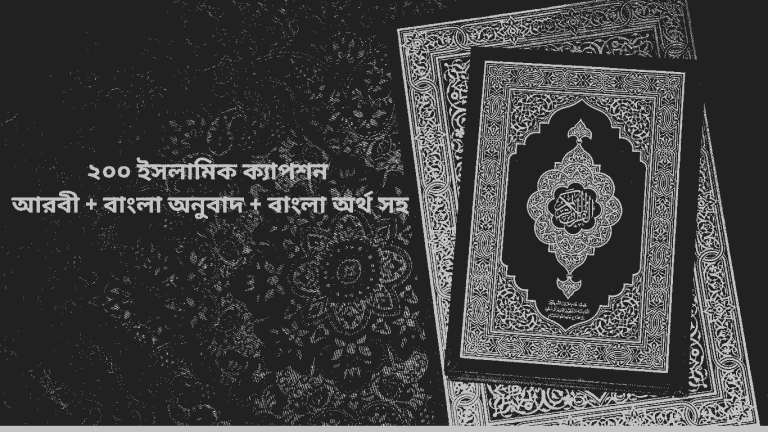 ২০০ ইসলামিক ক্যাপশন
আরবী + বাংলা অনুবাদ + বাংলা অর্থ সহ